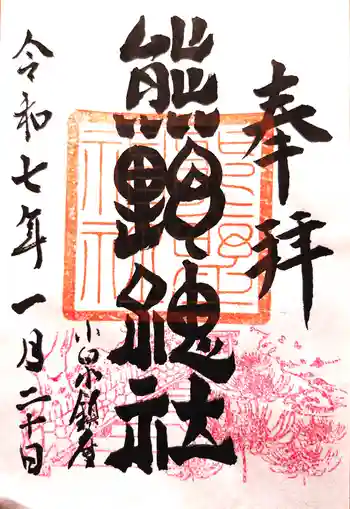 奉拝
熊野総社
小泉鎮座
令和七年一月二十日